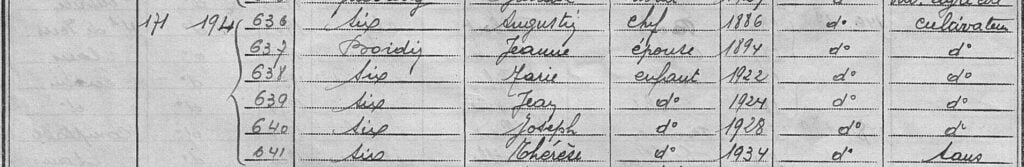 171 194 636 Six Augustin chef 1886 do cultivateur
637 Boidin Jeanne épouse 1894 do do
638 Six Marie enfant 1922 do do
639 Six Jean do 1924 do do
640 Six Joseph do 1928 do do
641 Six Thérèse do 1934 do sans